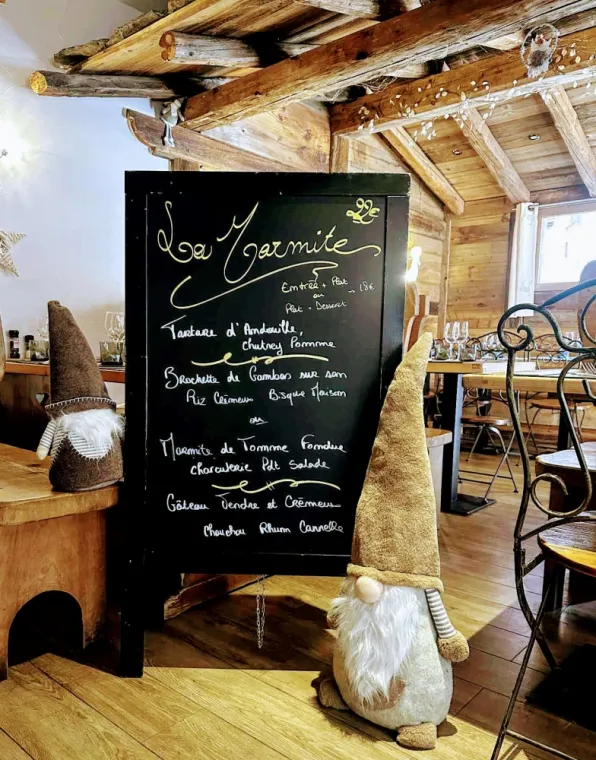 La Marmite
22€
Entrée + Plat
ou → 18€
Plat + Dessert
Tartare d'Andouille,
chutney Pomme
Brochette de Gambas sur son
Riz Crémeux Bisque Maison
ou
Marmite de Tomme Fondue
charcuterie Pdt Salade
Gâteau Tendre et Crémeux
Chouchou Rhum Cannelle